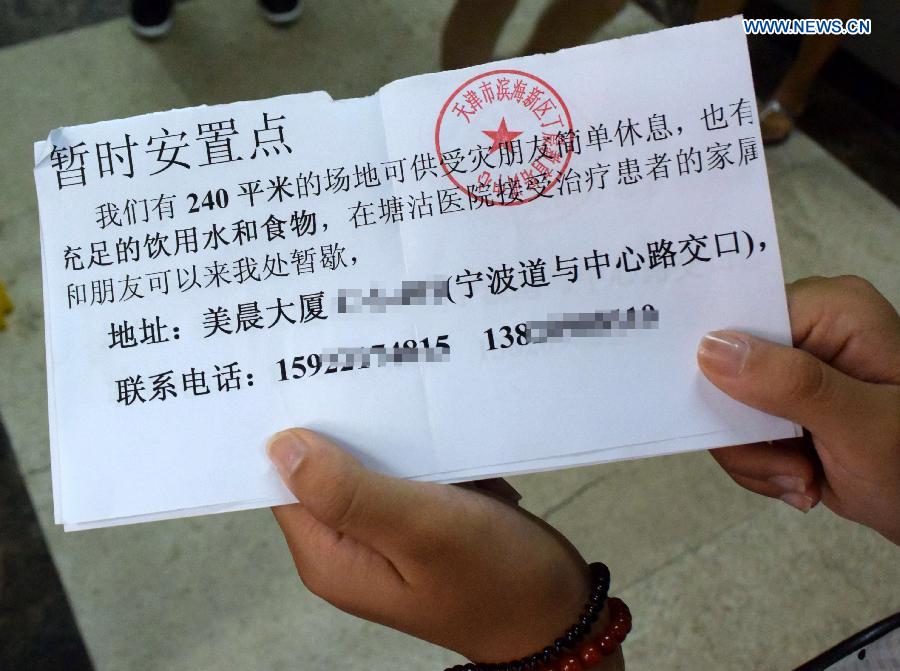 WWW.NEWS.CN
暂时安置点
我们有 240 平米的场地可供受灾朋友简单休息，也有
充足的饮用水和食物，在塘沽医院接受治疗患者的家属
和朋友可以来我处暂歇，
地址：美晨大厦 (宁波道与中心路交口)，
联系电话：159 138
天津市滨海新区